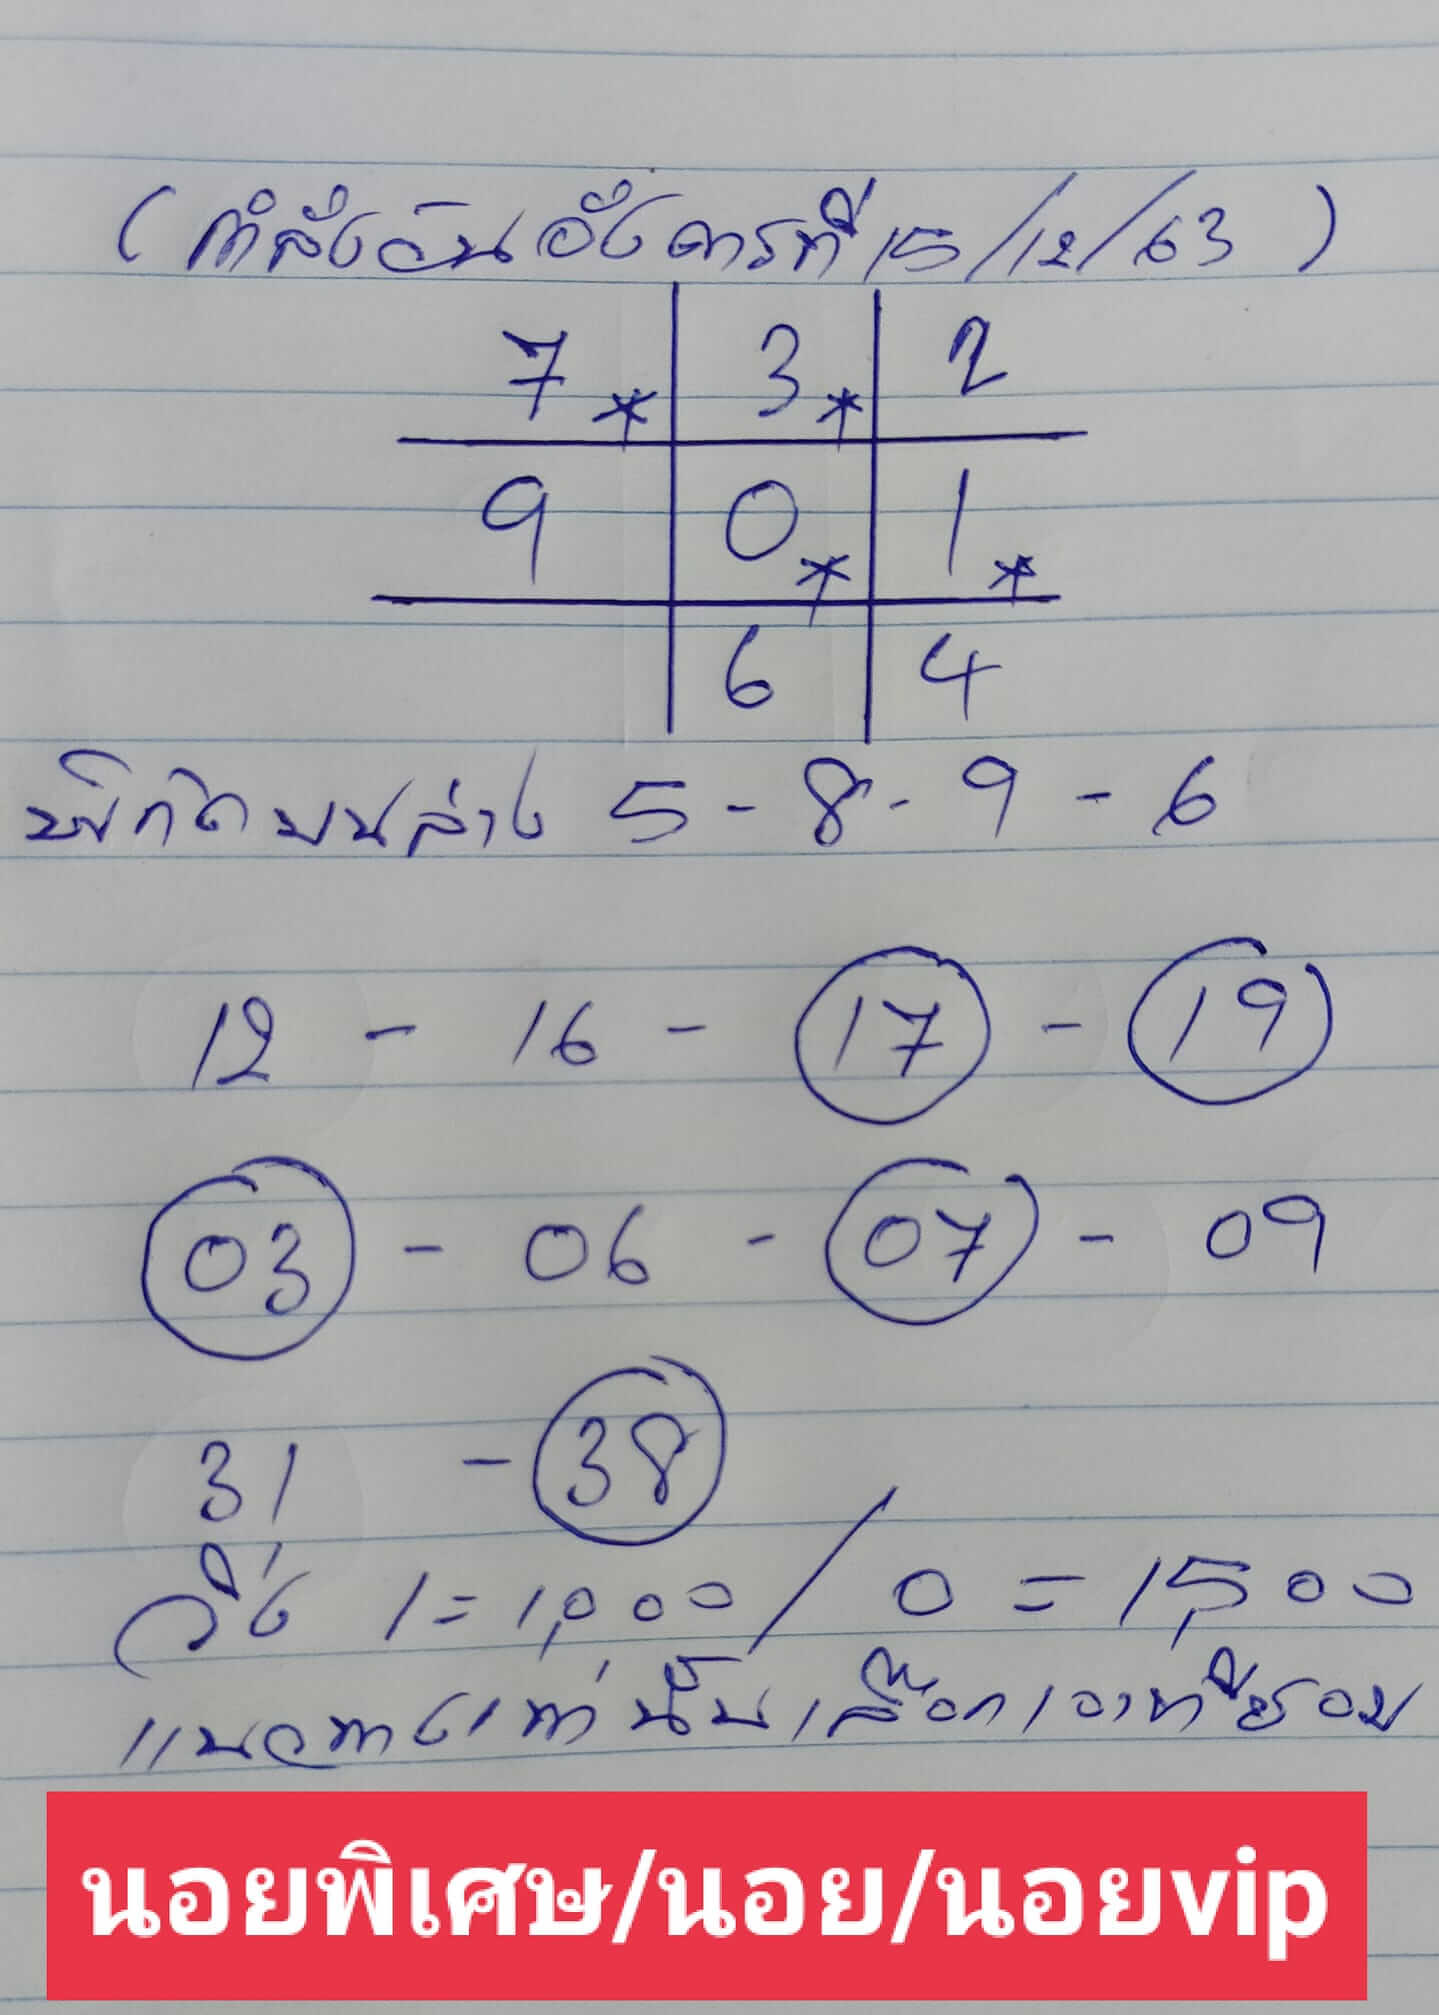 (กำลังวันอังคารที่ 15/12/63)
7* 3* 2
9 0* 1*
6 4
พิกัดบนล่าง 5 - 8 - 9 - 6
12 - 16 - 17 - 19
03 - 06 - 07 - 09
31 - 38
วิ่ง 1 = 1,000 / 0 = 1,500
แนวทางเท่านั้นเลือกเอาที่ชอบ
นอยพิเศษ/นอย/นอยvip